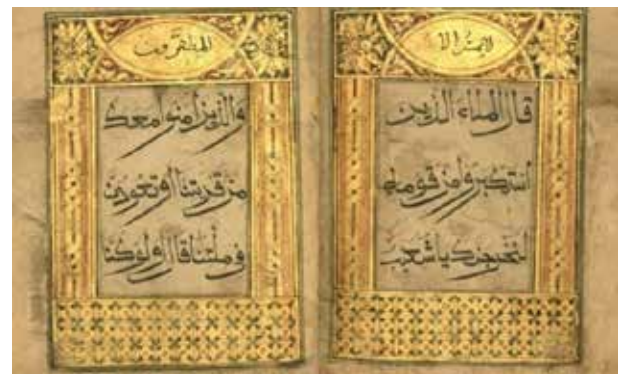 لا يمسه الا
قال الملاء الذين
استكبروا من قومه
لنخرجنك يا شعيب
المطهرون
والذين امنوا معك
من قريتنا او لتعودن
في ملتنا قال اولو كنا